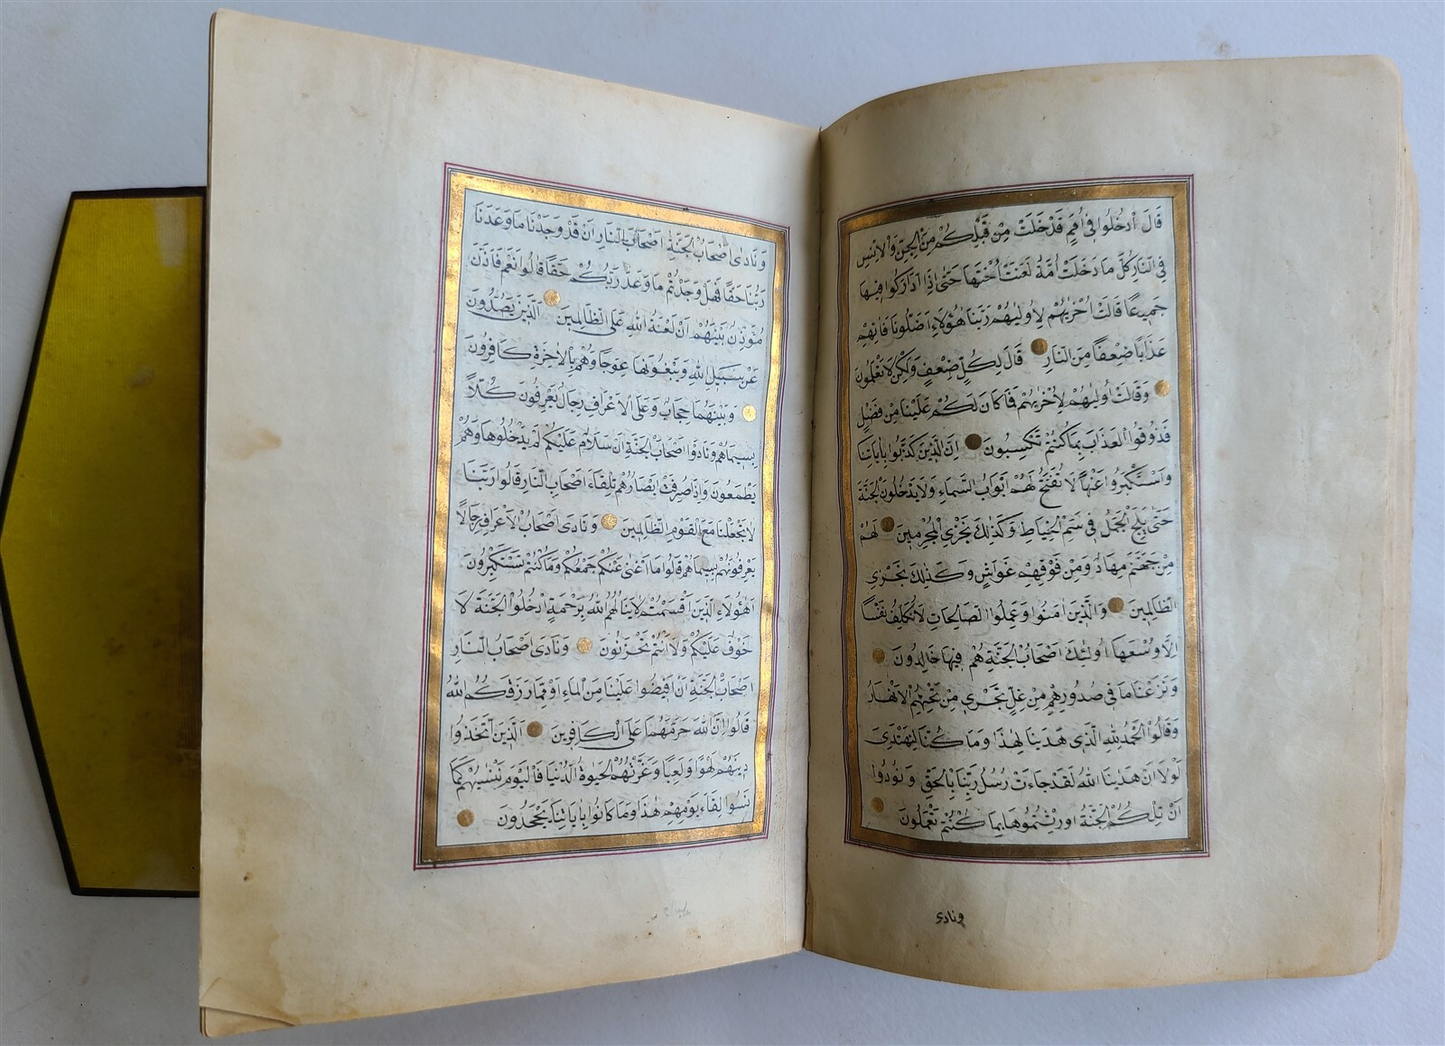 قَالَ ادْخُلُوا فِي أُمَمٍ قَدْ خَلَتْ مِنْ قَبْلِكُمْ مِنَ الْجِنِّ وَالْاِنْسِ
فِي النَّارِ كُلَّمَا دَخَلَتْ اُمَّةٌ لَعَنَتْ اُخْتَهَا حَتّٰى اِذَا ادَّارَكُوا فِيهَا
جَمِيعًا قَالَتْ اُخْرٰيهُمْ لِاُولٰيهُمْ رَبَّنَا هٰؤُلَاءِ اَضَلُّونَا فَاٰتِهِمْ
عَذَابًا ضِعْفًا مِنَ النَّارِ قَالَ لِكُلٍّ ضِعْفٌ وَلٰكِنْ لَا تَعْلَمُونَ
وَقَالَتْ اُولٰيهُمْ لِاُخْرٰيهُمْ فَمَا كَانَ لَكُمْ عَلَيْنَا مِنْ فَضْلٍ
فَذُوقُوا الْعَذَابَ بِمَا كُنْتُمْ تَكْسِبُونَ اِنَّ الَّذِينَ كَذَّبُوا بِاٰيَاتِنَا
وَاسْتَكْبَرُوا عَنْهَا لَا تُفَتَّحُ لَهُمْ اَبْوَابُ السَّمَاءِ وَلَا يَدْخُلُونَ الْجَنَّةَ
حَتّٰى يَلِجَ الْجَمَلُ فِي سَمِّ الْخِيَاطِ وَكَذٰلِكَ نَجْزِي الْمُجْرِمِينَ لَهُمْ
مِنْ جَهَنَّمَ مِهَادٌ وَمِنْ فَوْقِهِمْ غَوَاشٍ وَكَذٰلِكَ نَجْزِي
الظَّالِمِينَ وَالَّذِينَ اٰمَنُوا وَعَمِلُوا الصَّالِحَاتِ لَا نُكَلِّفُ نَفْسًا
اِلَّا وُسْعَهَا اُولٰئِكَ اَصْحَابُ الْجَنَّةِ هُمْ فِيهَا خَالِدُونَ
وَنَزَعْنَا مَا فِي صُدُورِهِمْ مِنْ غِلٍّ تَجْرِي مِنْ تَحْتِهِمُ الْاَنْهَارُ
وَقَالُوا الْحَمْدُ لِلّٰهِ الَّذِي هَدٰينَا لِهٰذَا وَمَا كُنَّا لِنَهْتَدِيَ
لَوْلَا اَنْ هَدٰينَا اللّٰهُ لَقَدْ جَاءَتْ رُسُلُ رَبِّنَا بِالْحَقِّ وَنُودُوا
اَنْ تِلْكُمُ الْجَنَّةُ اُورِثْتُمُوهَا بِمَا كُنْتُمْ تَعْمَلُونَ
ونادى
وَنَادٰى اَصْحَابُ الْجَنَّةِ اَصْحَابَ النَّارِ اَنْ قَدْ وَجَدْنَا مَا وَعَدَنَا
رَبُّنَا حَقًّا فَهَلْ وَجَدْتُمْ مَا وَعَدَ رَبُّكُمْ حَقًّا قَالُوا نَعَمْ فَاَذَّنَ
مُؤَذِّنٌ بَيْنَهُمْ اَنْ لَعْنَةُ اللّٰهِ عَلَى الظَّالِمِينَ اَلَّذِينَ يَصُدُّونَ
عَنْ سَبِيلِ اللّٰهِ وَيَبْغُونَهَا عِوَجًا وَهُمْ بِالْاٰخِرَةِ كَافِرُونَ
وَبَيْنَهُمَا حِجَابٌ وَعَلَى الْاَعْرَافِ رِجَالٌ يَعْرِفُونَ كُلًّا
بِسِيمٰاهُمْ وَنَادَوْا اَصْحَابَ الْجَنَّةِ اَنْ سَلَامٌ عَلَيْكُمْ لَمْ يَدْخُلُوهَا وَهُمْ
يَطْمَعُونَ وَاِذَا صُرِفَتْ اَبْصَارُهُمْ تِلْقَاءَ اَصْحَابِ النَّارِ قَالُوا رَبَّنَا
لَا تَجْعَلْنَا مَعَ الْقَوْمِ الظَّالِمِينَ وَنَادٰى اَصْحَابُ الْاَعْرَافِ رِجَالًا
يَعْرِفُونَهُمْ بِسِيمٰاهُمْ قَالُوا مَا اَغْنٰى عَنْكُمْ جَمْعُكُمْ وَمَا كُنْتُمْ تَسْتَكْبِرُونَ
اَهٰؤُلَاءِ الَّذِينَ اَقْسَمْتُمْ لَا يَنَالُهُمُ اللّٰهُ بِرَحْمَةٍ اُدْخُلُوا الْجَنَّةَ لَا
خَوْفٌ عَلَيْكُمْ وَلَا اَنْتُمْ تَحْزَنُونَ وَنَادٰى اَصْحَابُ النَّارِ
اَصْحَابَ الْجَنَّةِ اَنْ اَفِيضُوا عَلَيْنَا مِنَ الْمَاءِ اَوْ مِمَّا رَزَقَكُمُ اللّٰهُ
قَالُوا اِنَّ اللّٰهَ حَرَّمَهُمَا عَلَى الْكَافِرِينَ اَلَّذِينَ اتَّخَذُوا
دِينَهُمْ لَهْوًا وَلَعِبًا وَغَرَّتْهُمُ الْحَيٰوةُ الدُّنْيَا فَالْيَوْمَ نَنْسٰيهُمْ كَمَا
نَسُوا لِقَاءَ يَوْمِهِمْ هٰذَا وَمَا كَانُوا بِاٰيَاتِنَا يَجْحَدُونَ